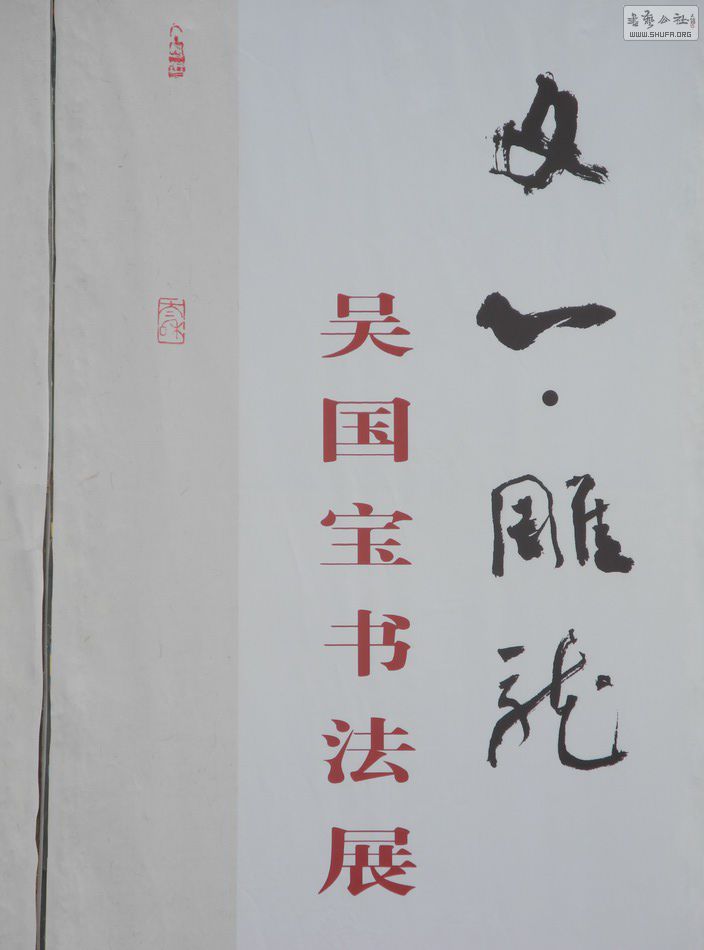 文心·雕龙
吴国宝书法展
书艺公社
WWW.SHUFA.ORG